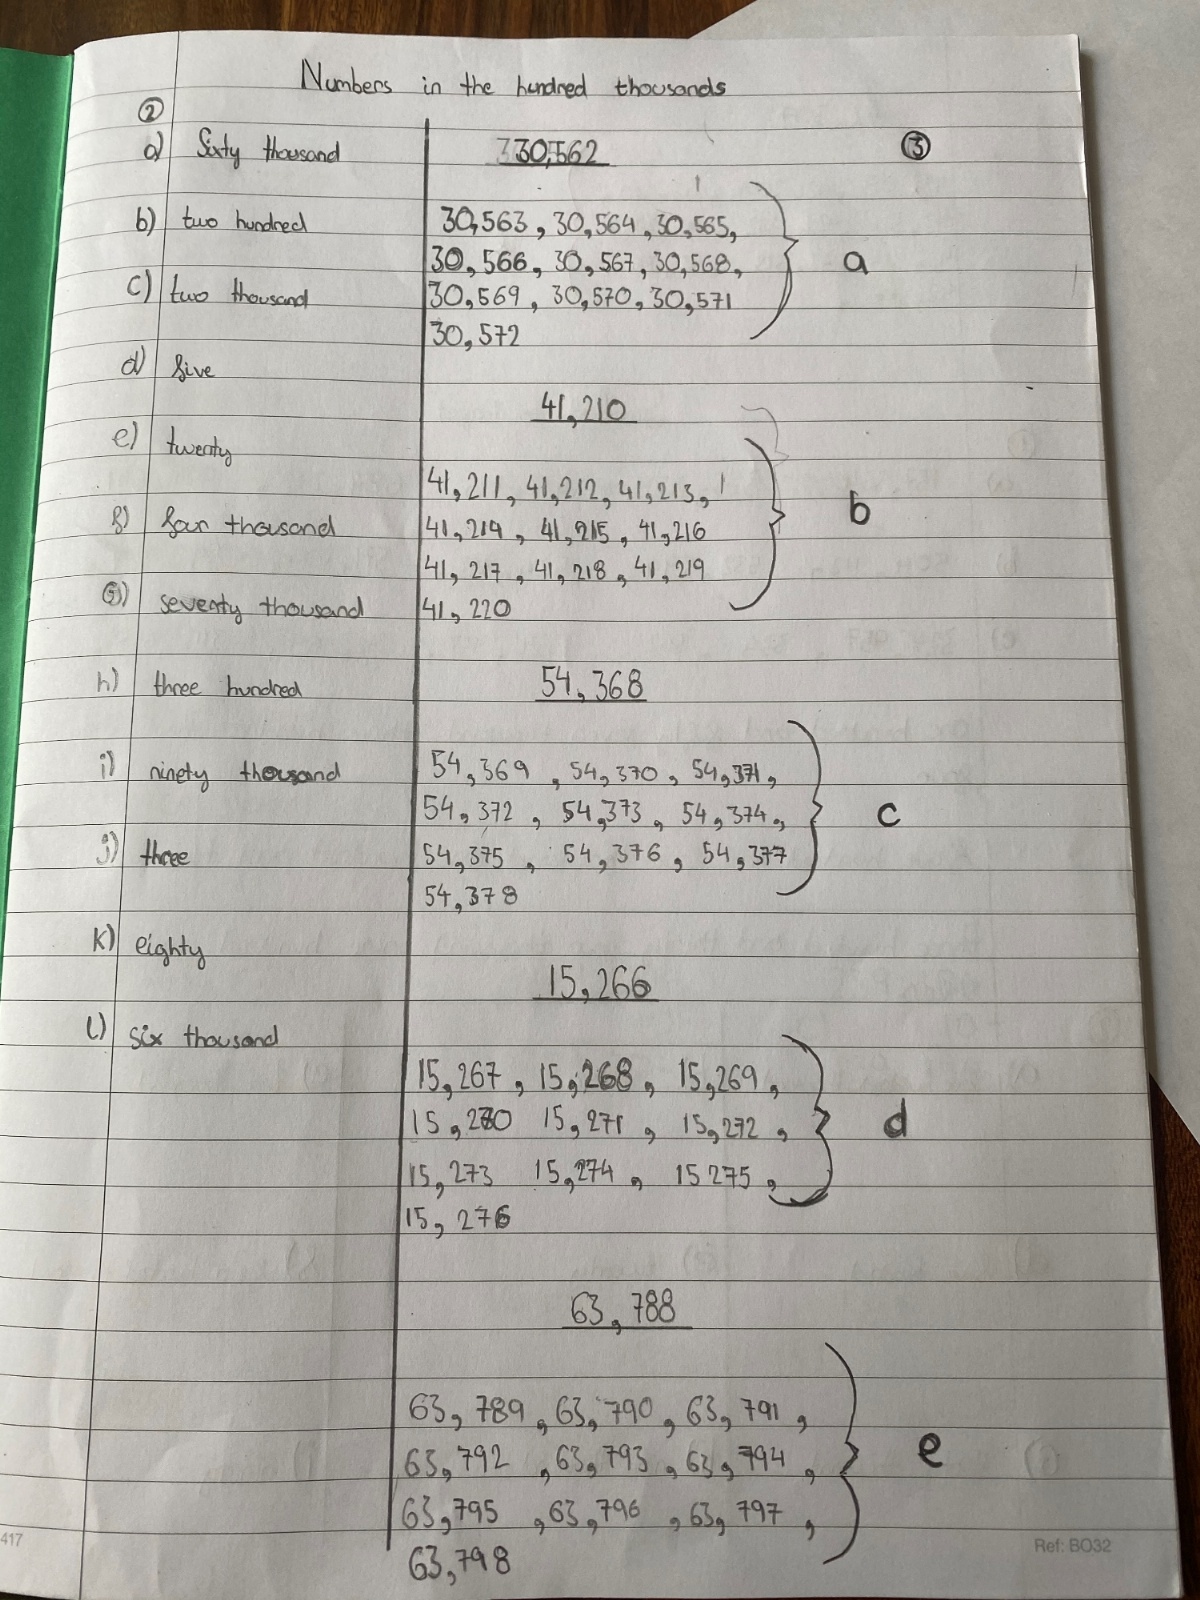 Numbers in the hundred thousands
②
a) Sixty thousand
b) two hundred
c) two thousand
d) five
e) twenty
f) four thousand
g) seventy thousand
h) three hundred
i) ninety thousand
j) three
k) eighty
l) six thousand
③
30,562
30,563, 30,564, 30,565,
30,566, 30,567, 30,568,
30,569, 30,570, 30,571
30,572
a
41,210
41,211, 41,212, 41,213,
41,214, 41,215, 41,216
41,217, 41,218, 41,219
41,220
b
54,368
54,369, 54,370, 54,371,
54,372, 54,373, 54,374,
54,375, 54,376, 54,377
54,378
c
15,266
15,267, 15,268, 15,269,
15,270 15,271, 15,272,
15,273 15,274, 15 275,
15,276
d
63,788
63,789, 63,790, 63,791,
63,792, 63,793, 63,794,
63,795, 63,796, 63,797,
63,798
e
417
Ref: BO32